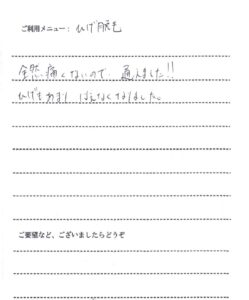 ご利用メニュー：ひげ脱毛
全然痛くないので 通えました!!
ひげもあまり はえなくなりました。
ご要望など、ございましたらどうぞ